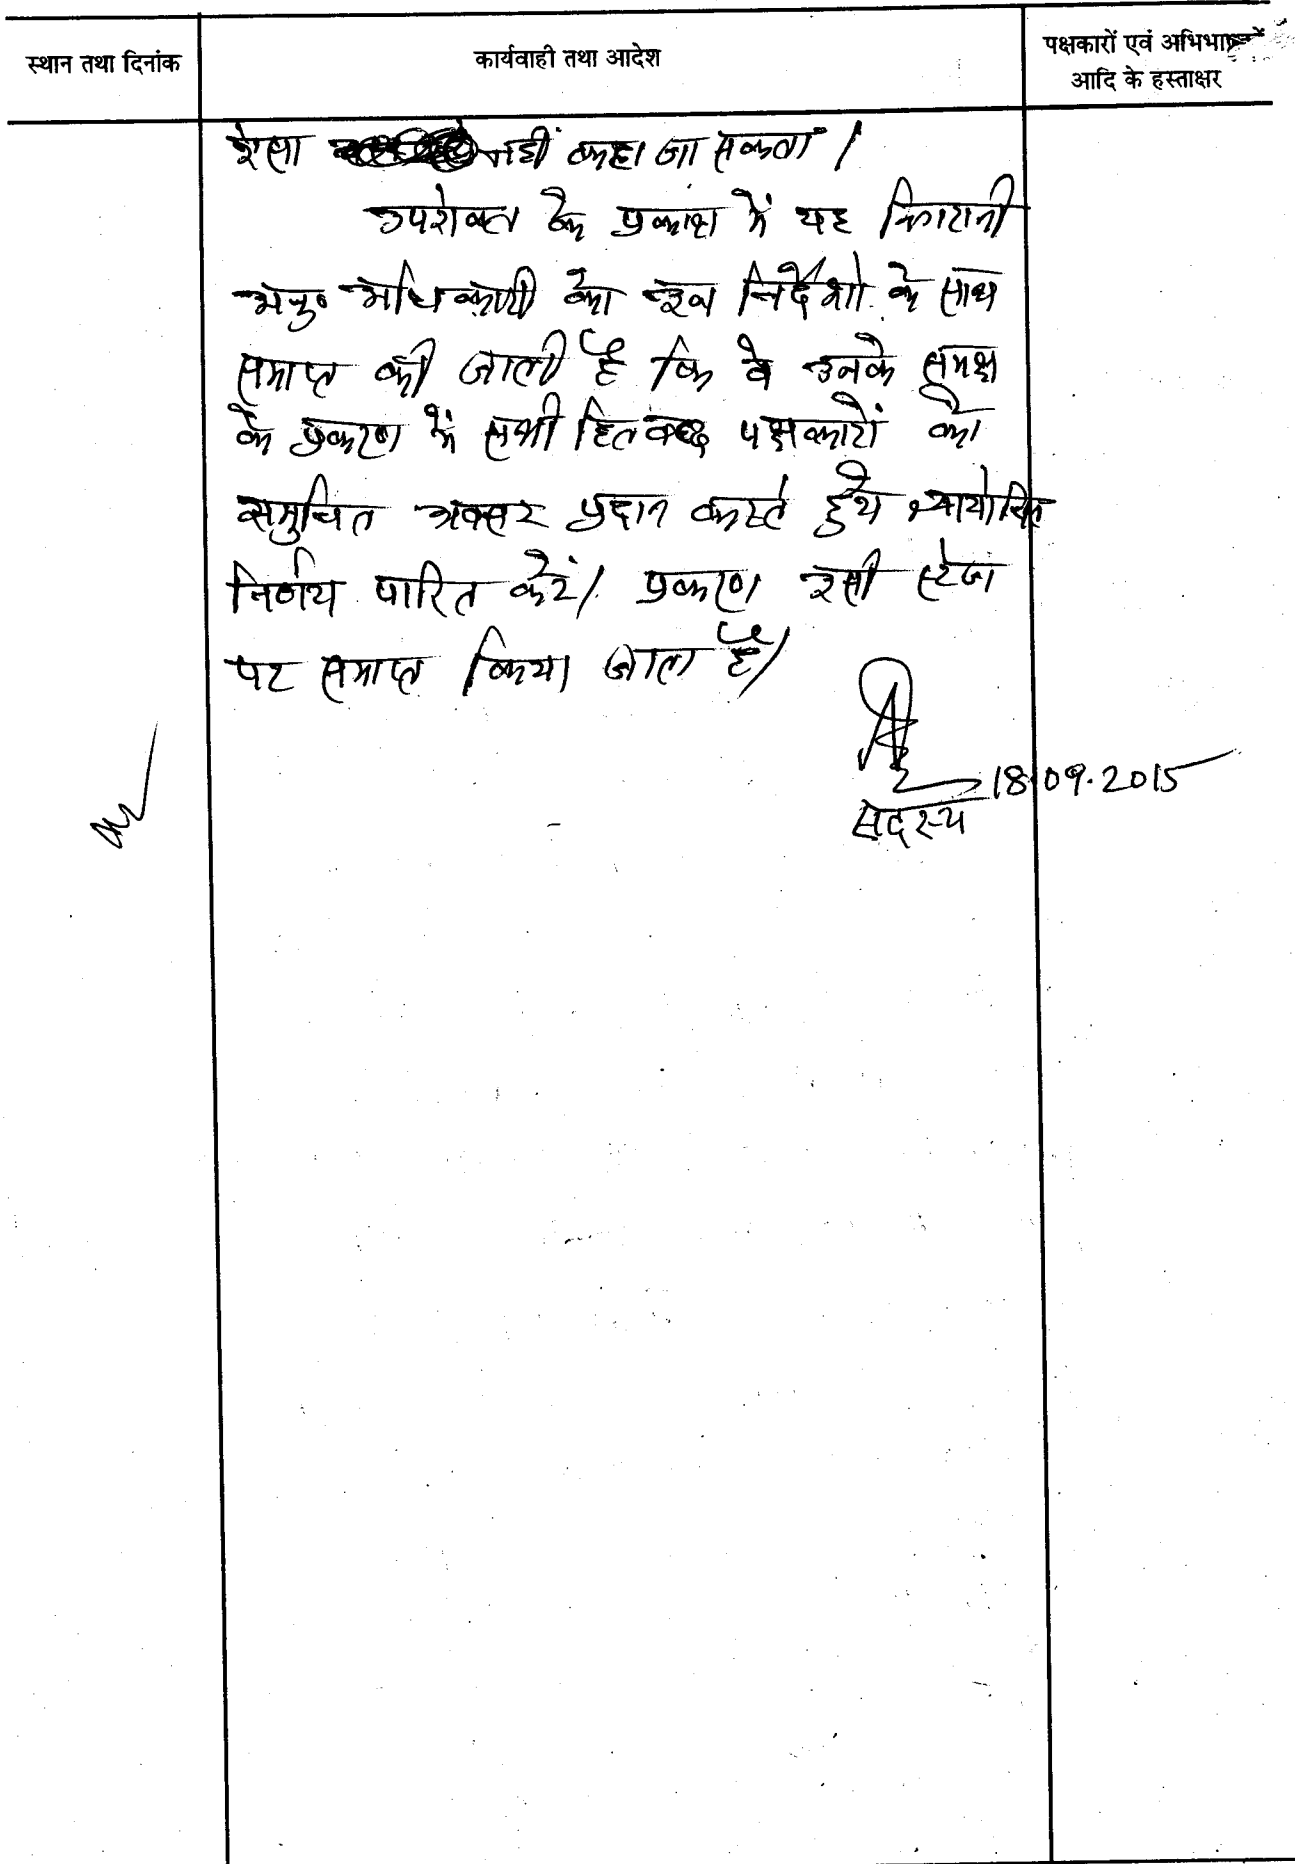 स्थान तथा दिनांक
कार्यवाही तथा आदेश
पक्षकारों एवं अभिभाषकों
आदि के हस्ताक्षर
ऐसा नहीं कहा जा सकता ।
उपरोक्त के प्रकाश में यह निगरानी
अनु० अधिकारी को इन निर्देशों के साथ
समाप्त की जाती है कि वे उनके समक्ष
के प्रकरण में सभी हितबद्ध पक्षकारों को
समुचित अवसर प्रदान करते हुये न्यायोचित
निर्णय पारित करें। प्रकरण इसी स्टेज
पर समाप्त किया जाता है।
18.09.2015
सदस्य